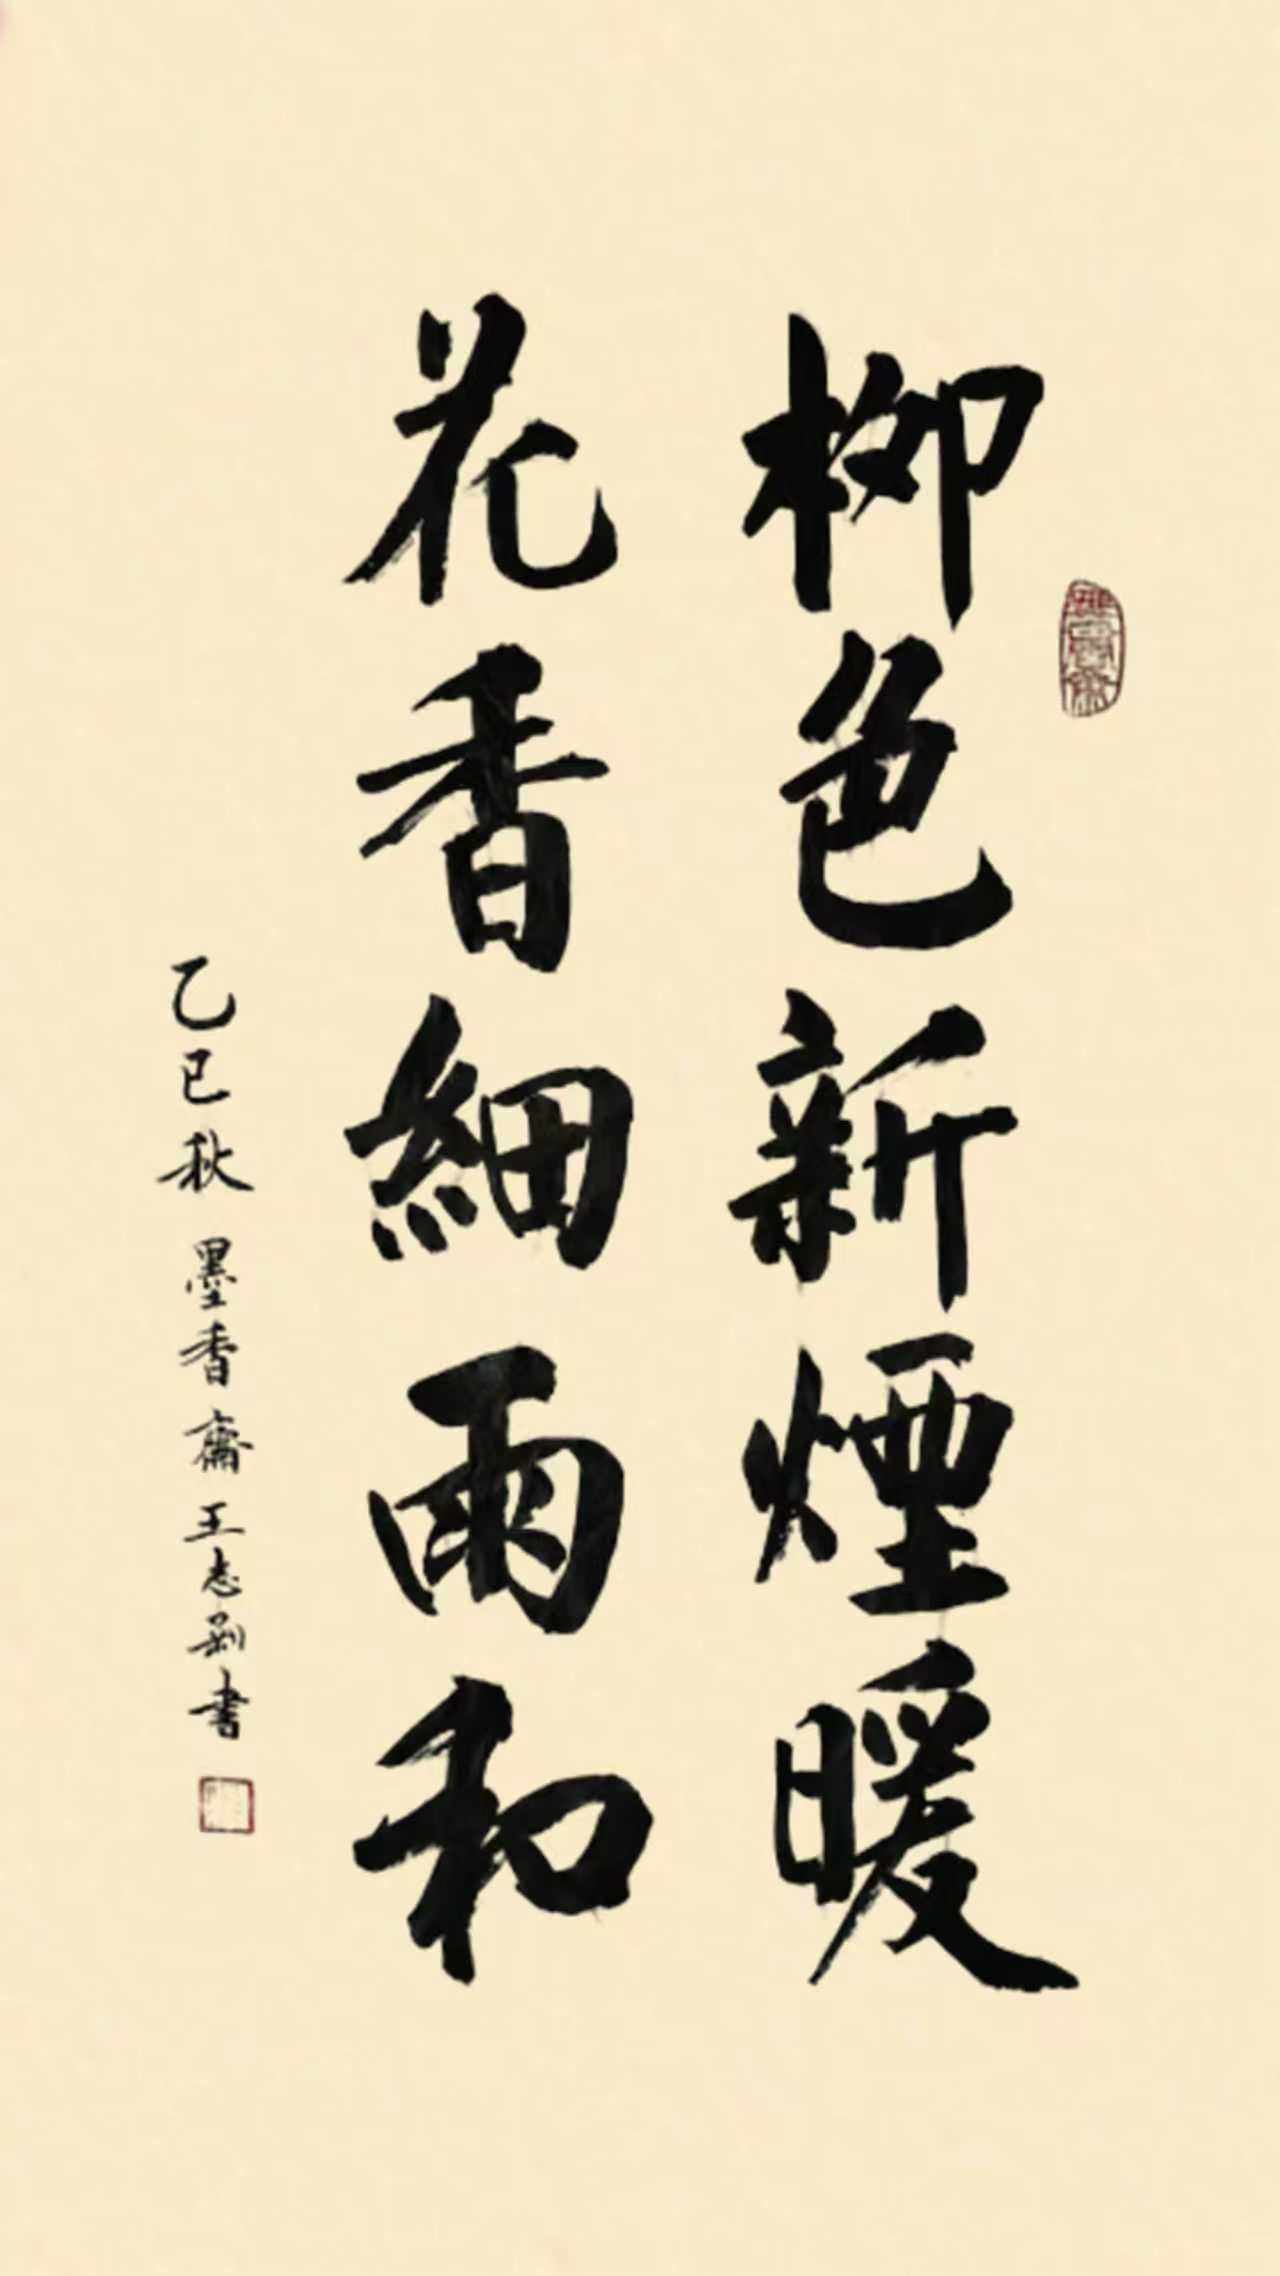 柳色新煙暖
花香細雨和
乙巳秋 墨香齋王志剛書